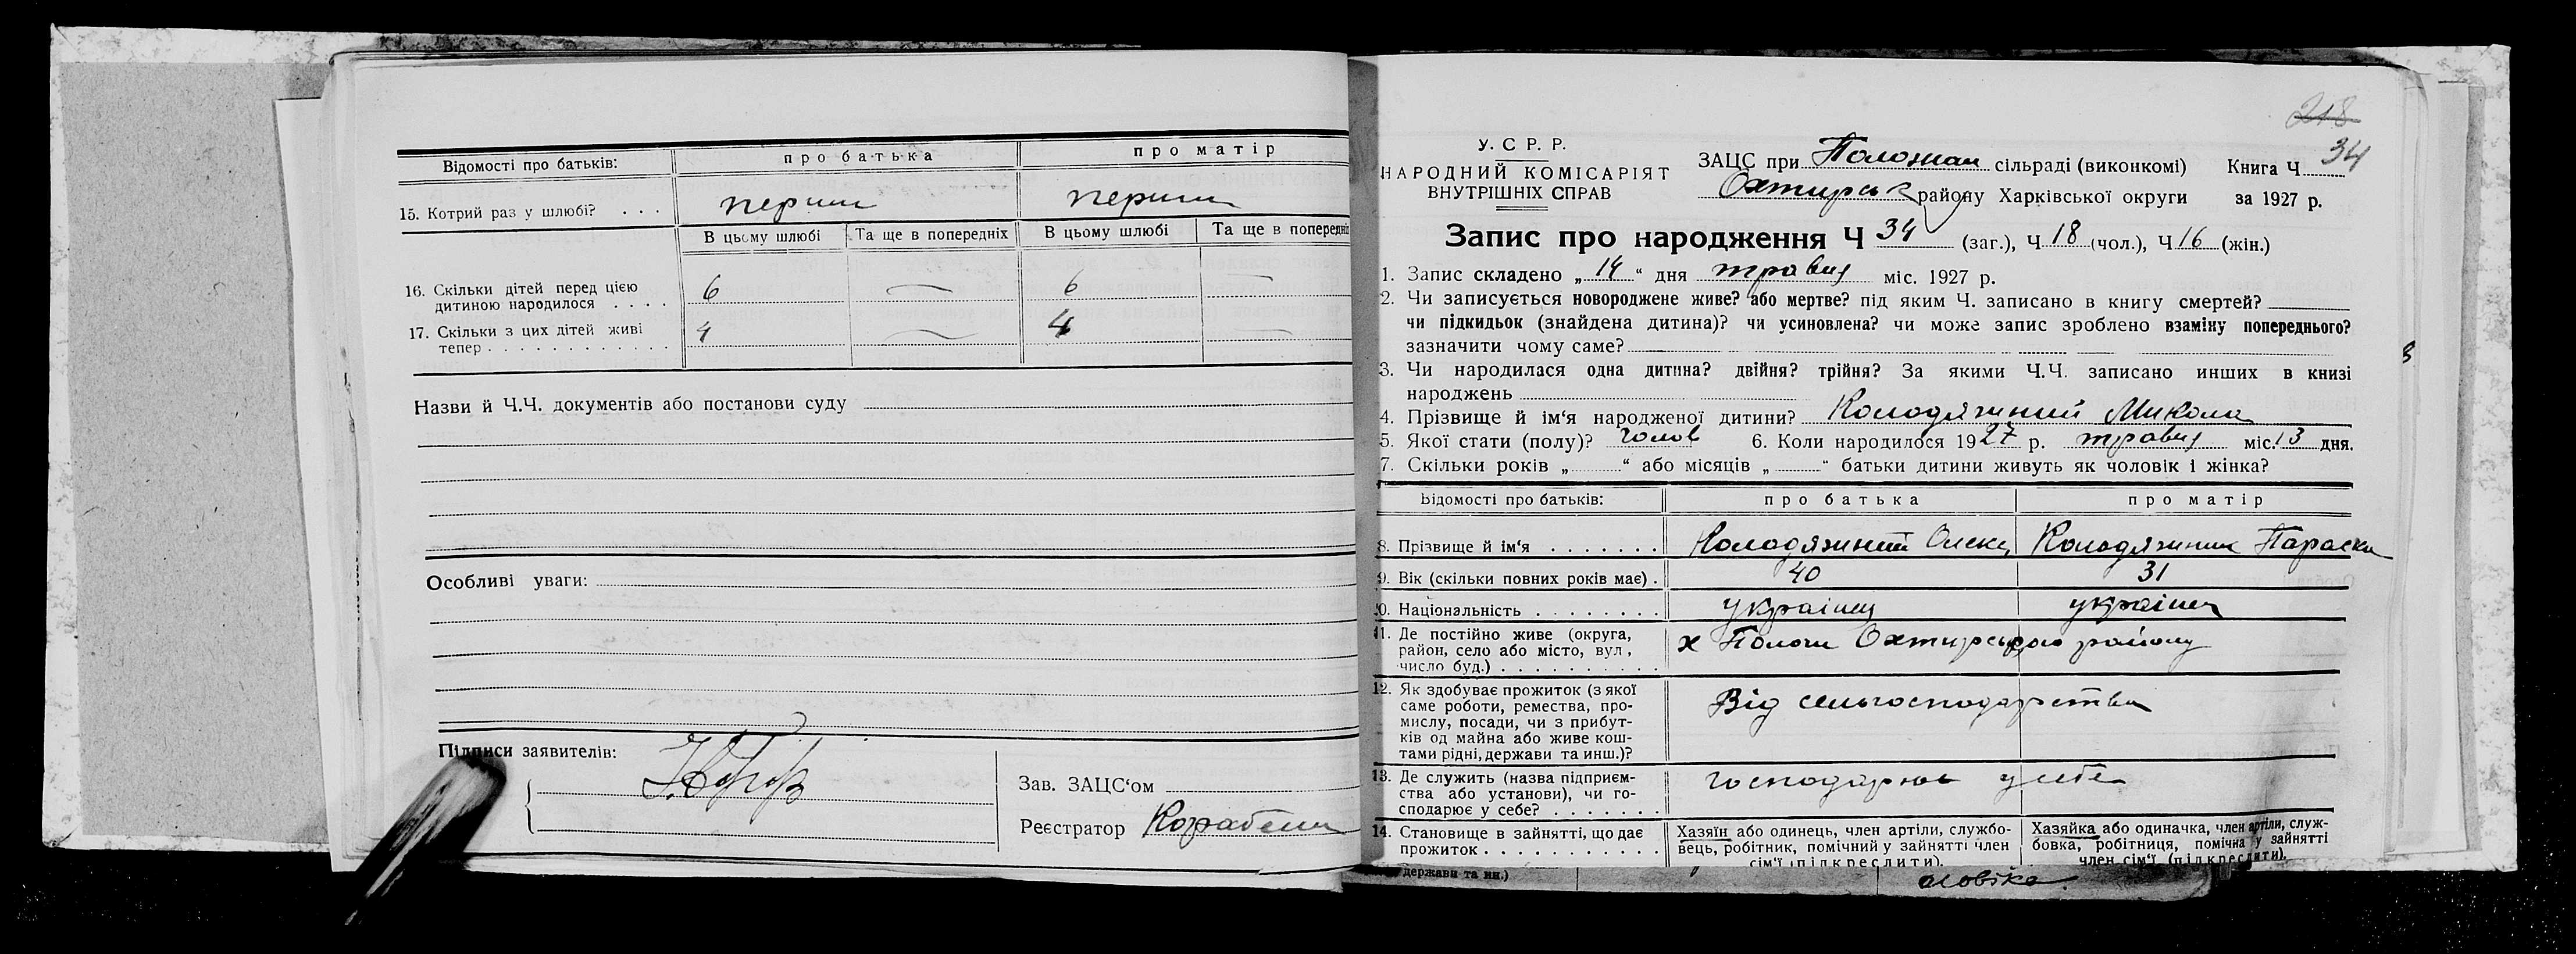 Відомості про батьків: про батька про матір
15. Котрий раз у шлюбі? . . . перший перший
В цьому шлюбі Та ще в попередніх В цьому шлюбі Та ще в попередніх
16. Скільки дітей перед цією
дитиною народилося . . . . 6 — 6 —
17. Скільки з цих дітей живі
тепер . . . . . . . . . . . . 4 — 4 —
Назви й Ч.Ч. документів або постанови суду
Особливі уваги:
Підписи заявителів:
Зав. ЗАЦС‘ом
Реєстратор
218
У. С Р. Р.
НАРОДНИЙ КОМІСАРІЯТ
ВНУТРІШНІХ СПРАВ
ЗАЦС при сільраді (виконкомі) Книга Ч 34
Охтирськ району Харківської округи за 1927 р.
Запис про народження Ч 34 (заг.), Ч 18 (чол.), Ч 16 (жін.)
1. Запис складено „ 14 “ дня травня міс. 1927 р.
2. Чи записується новороджене живе? або мертве? під яким Ч. записано в книгу смертей?
чи підкидьок (знайдена дитина)? чи усиновлена? чи може запис зроблено взаміну попереднього?
зазначити чому саме?
3. Чи народилася одна дитина? двійня? трійня? За якими Ч.Ч. записано инших в книзі
народжень
4. Прізвище й ім‘я народженої дитини? Колодяжний Микола
5. Якої стати (полу)? чолов 6. Коли народилося 1927 р. травня міс. 13 дня.
7. Скільки років „ “ або місяців „ “ батьки дитини живуть як чоловік і жінка?
Відомості про батьків: про батька про матір
8. Прізвище й ім‘я . . . . . . . Колодяжний Олекс Колодяжник Параска
9. Вік (скільки повних років має) . 40 31
10. Національність . . . . . . . . українец українка
11. Де постійно живе (округа,
район, село або місто, вул ,
число буд.) . . . . . . . . . . х Пологи Охтирського району
12. Як здобуває прожиток (з якої
саме роботи, ремества, про-
мислу, посади, чи з прибут-
ків од майна або живе кош-
тами рідні, держави та инш.)? Від сельгосподарства
13. Де служить (назва підприєм-
ства або установи), чи го-
сподарює у себе? . . . . . . . господарює у себе
14. Становище в зайнятті, що дає
прожиток . . . . . . . . . . . .
Хазяїн або одинець, член артіли, службо-
вець, робітник, помічний у зайнятті член
сім‘ї (підкреслити).
Хазяйка або одиначка, член артіли, служ-
бовка, робітниця, помічна у зайнятті
член сім‘ї (підкреслити).
держави та ин.)